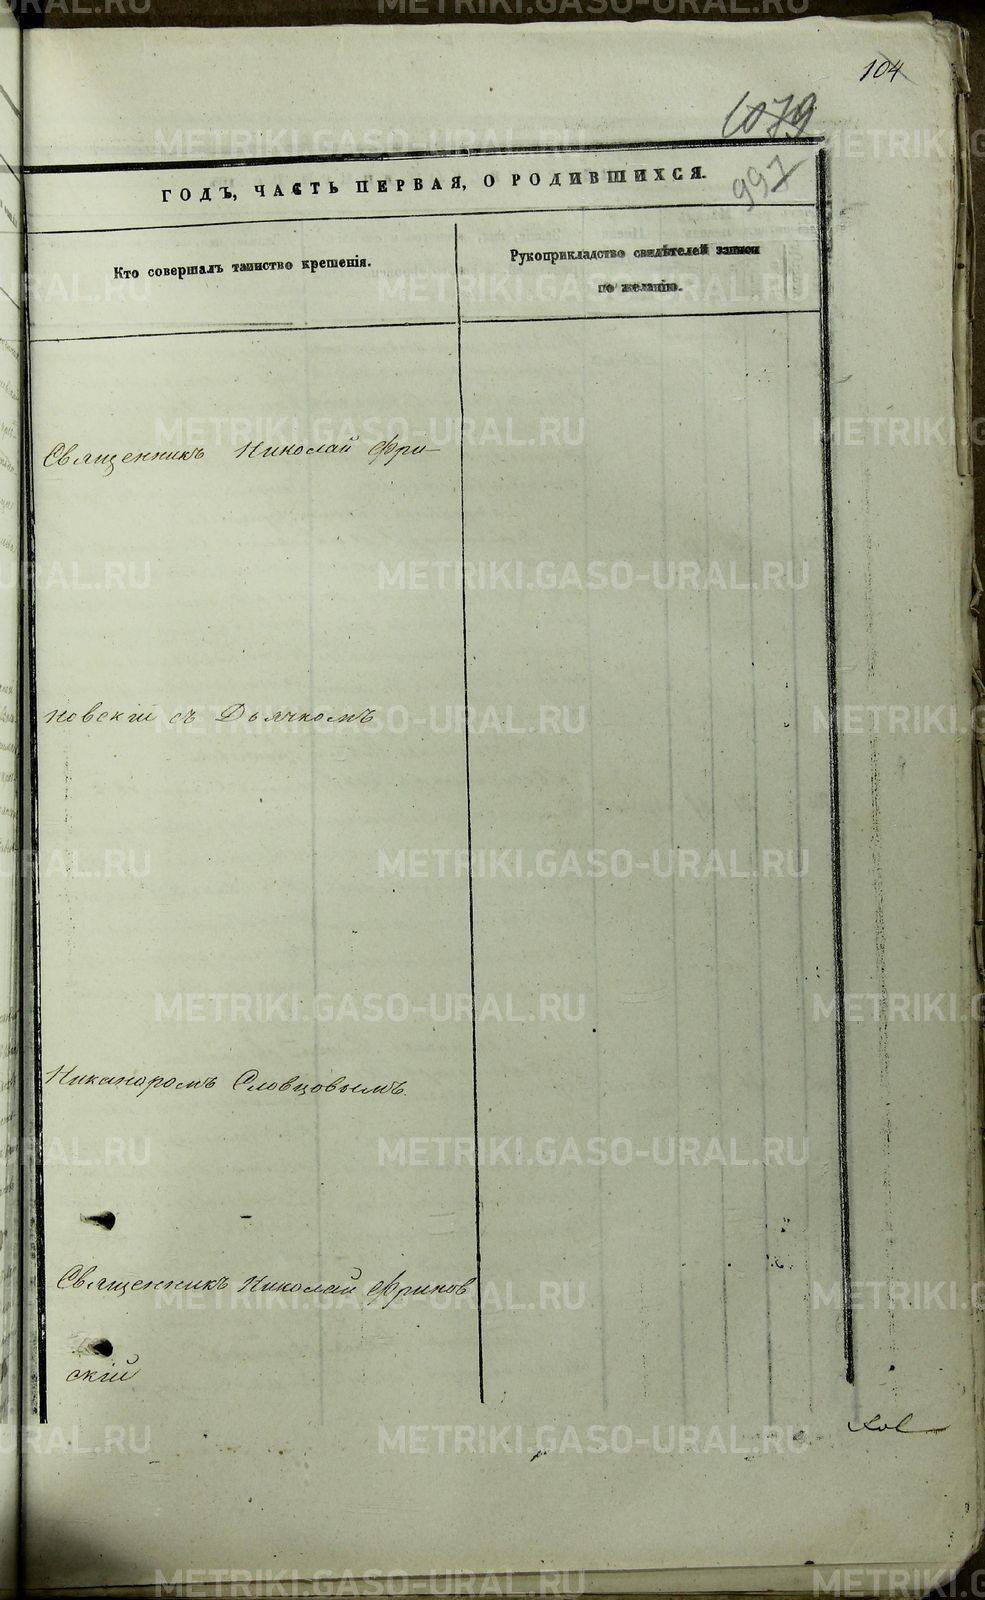 104
1079
997
ГОДЪ, ЧАСТЬ ПЕРВАЯ, О РОДИВШИХСЯ.
Кто совершалъ таинство крещенія.
Рукоприкладство свидѣтелей записи
по желанію.
Священникъ Николай Фри-
новскій съ Дьячкомъ
Никаноромъ Словцовымъ.
Священникъ Николай Фринов
скій
METRIKI.GASO-URAL.RU